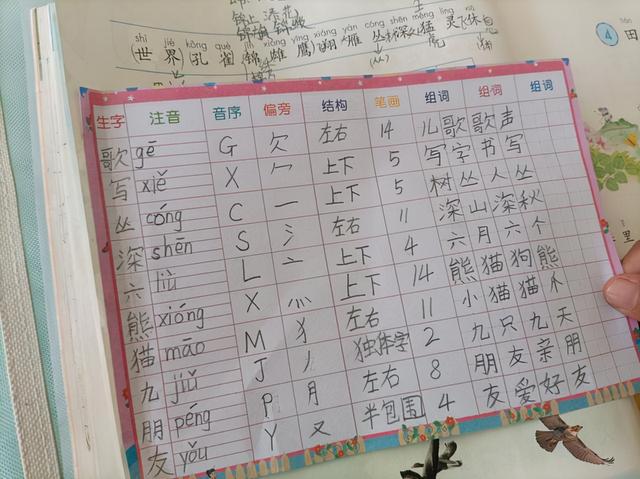 shì jiè kǒng què jǐn xióng yīng xiáng yàn cóng shēn měng líng xiū
(世 界 孔 雀 锦 雄 鹰 翔 雁 丛 深 猛 灵 休
4 田
生字 注音 音序 偏旁 结构 笔画 组词 组词 组词
歌 gē G 欠 左右 14 儿歌 歌声
写 xiě X 冖 上下 5 写字 书写
丛 cóng C 一 上下 5 树丛 人丛
深 shēn S 氵 左右 11 深山 深秋
六 liù L 亠 上下 4 六月 六个
熊 xióng X 灬 上下 14 熊猫 狗熊
猫 māo M 犭 左右 11 小猫 猫
九 jiǔ J 丿 独体字 2 九只 九天
朋 péng P 月 左右 8 朋友 亲朋
友 yǒu Y 又 半包围 4 友爱 好友
里